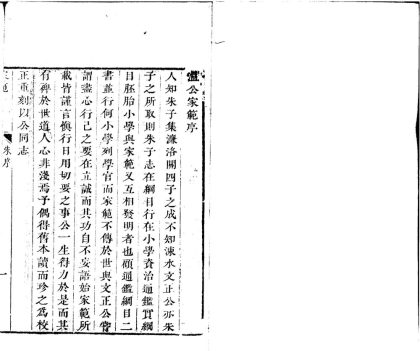 溫公家範序
人知朱子集濂洛關四子之成不知涑水文正公亦朱
子之所取則朱子志在綱目行在小學資治通鑑實綱
目胚胎小學與家範又互相發明者也顧通鑑綱目二
書並行何小學列學官而家範不傳於世與文正公嘗
謂盡心行己之要在立誠而其功自不妄語始家範所
載皆謹言愼行日用切要之事公一生得力於是而其
有裨於世道人心非淺焉予偶得舊本讀而珍之爲校
正重刻以公同志
朱序